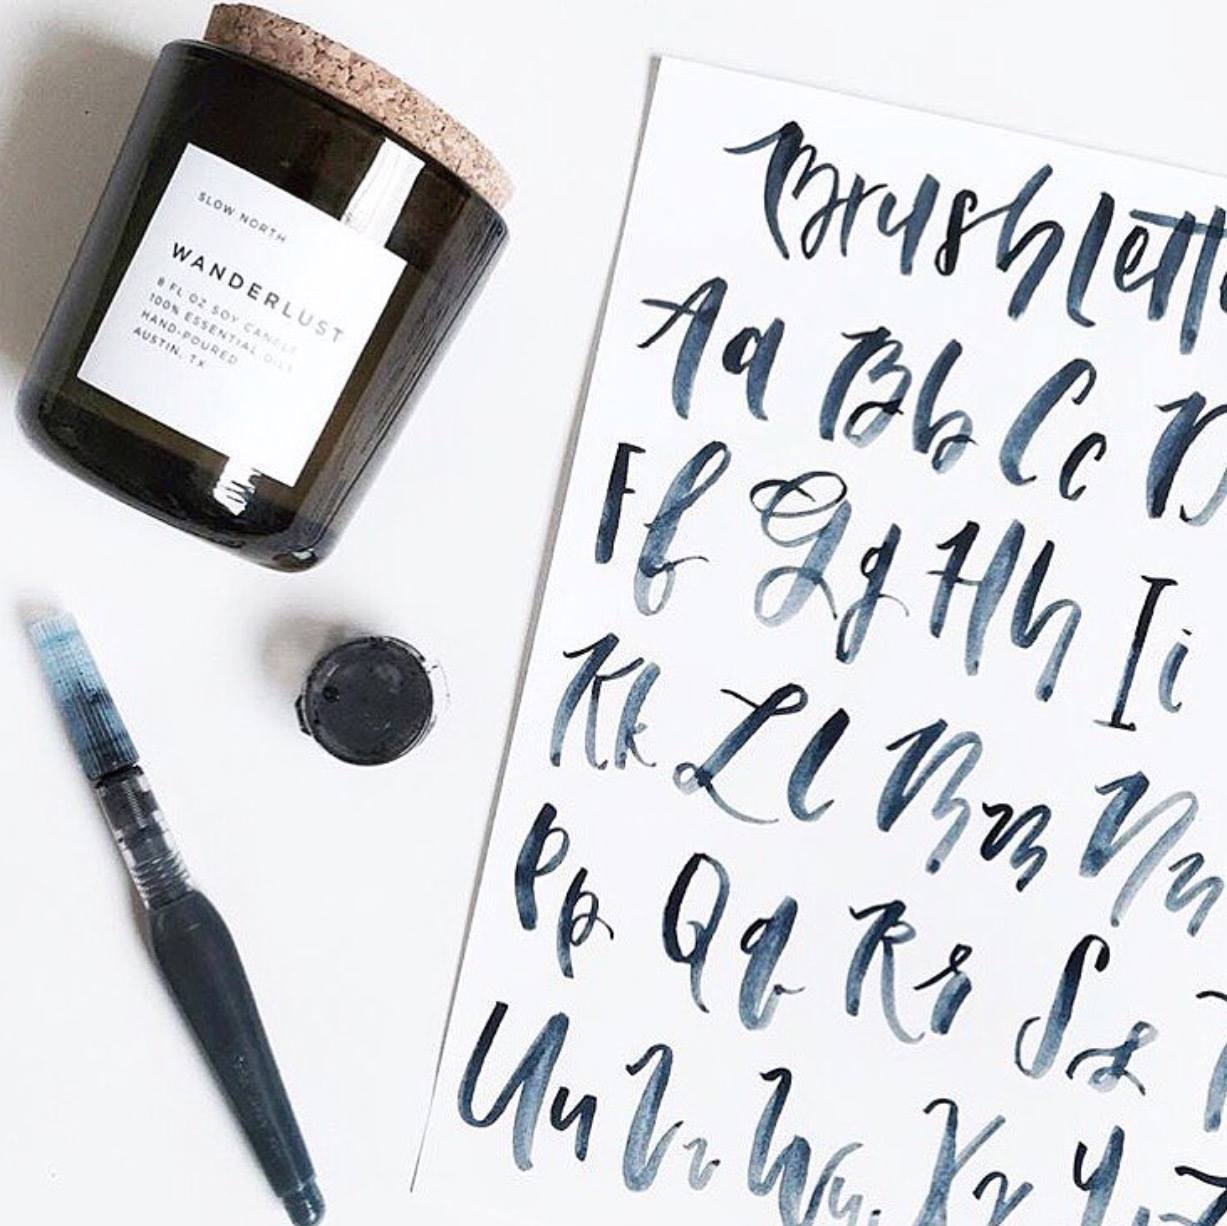 SLOW NORTH
WANDERLUST
8 FL OZ SOY CANDLE
100% ESSENTIAL OILS
HAND-POURED
AUSTIN, TX
Brush lett
Aa Bb Cc D
Ff Gg Hh Ii
Kk Ll Mm Nn
Pp Qq Rr Ss T
Uu Vv Ww Xx Y Z